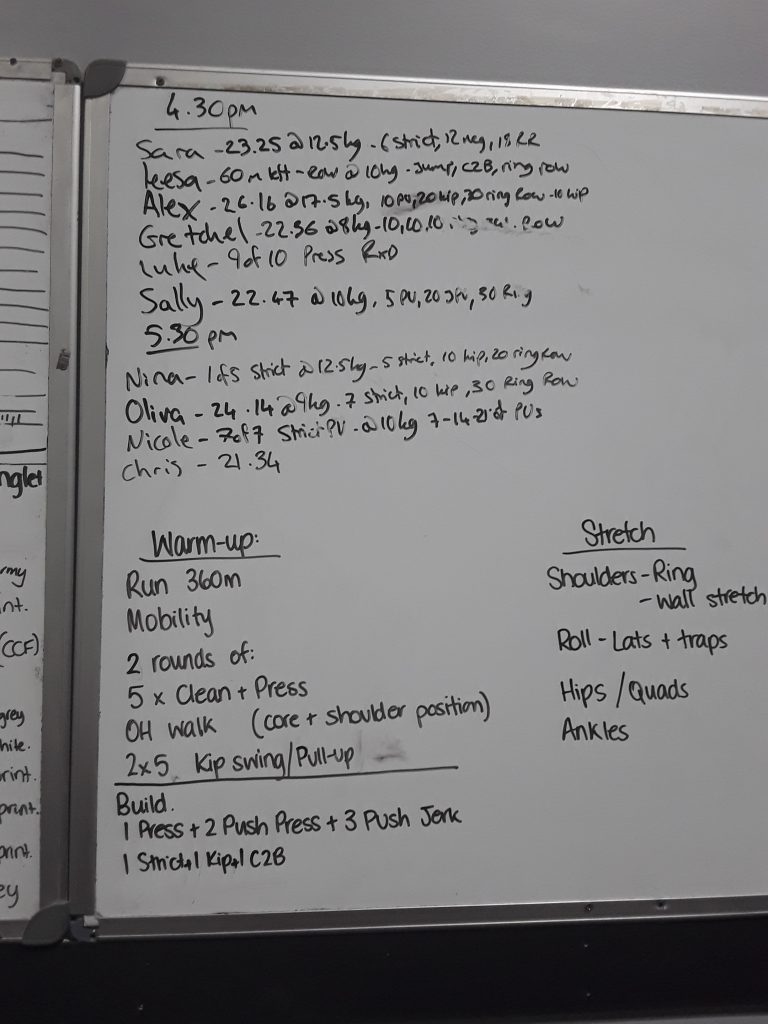 4.30pm
Sara - 23.25 @ 12.5kg - 6 strict, 12 neg, 18 RR
Leesa - 60m left - row @ 10kg - Jump, C2B, ring row
Alex - 26.16 @ 17.5kg, 10 PU, 20 kip, 30 ring Row - 10 kip
Gretchel - 22.36 @ 8kg - 10, 10, 10 Row
Luke - 9 of 10 Press RxD
Sally - 22.47 @ 10kg, 5 PU, 20 30 Ring
5.30 pm
Nina - 1 of 5 strict @ 12.5kg - 5 strict, 10 kip, 20 ring Row
Oliva - 24.14 @ 9kg - 7 strict, 10 kip, 30 Ring Row
Nicole - 7 of 7 Strict PU - @ 10kg 7-14-21 PUs
Chris - 21.34
nglet
rmy
int.
(CCF)
grey
hite.
rint.
print.
print.
ey
Warm-up:
Run 360m
Mobility
2 rounds of:
5 x Clean + Press
OH walk (core + shoulder position)
2x5 Kip swing/Pull-up
Build.
1 Press + 2 Push Press + 3 Push Jerk
1 Strict+1 Kip+1 C2B
Stretch
Shoulders - Ring
- wall stretch
Roll - Lats + traps
Hips / Quads
Ankles